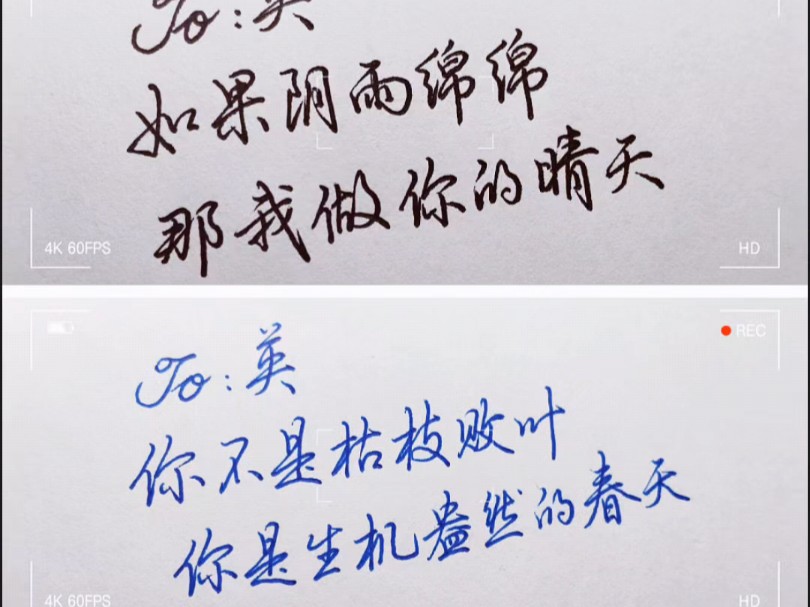 To:英
如果阴雨绵绵
那我做你的晴天
4K 60FPS
HD
REC
To:英
你不是枯枝败叶
你是生机盎然的春天
4K 60FPS
HD